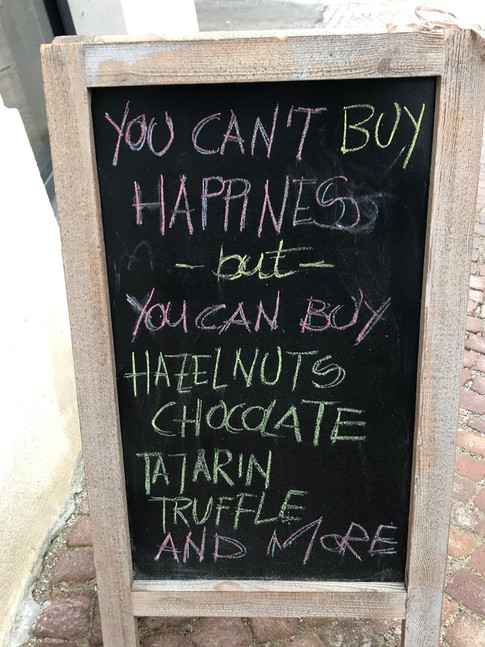 YOU CAN'T BUY
HAPPINESS
- but -
YOU CAN BUY
HAZELNUTS
CHOCOLATE
TAJARIN
TRUFFLE
AND MORE